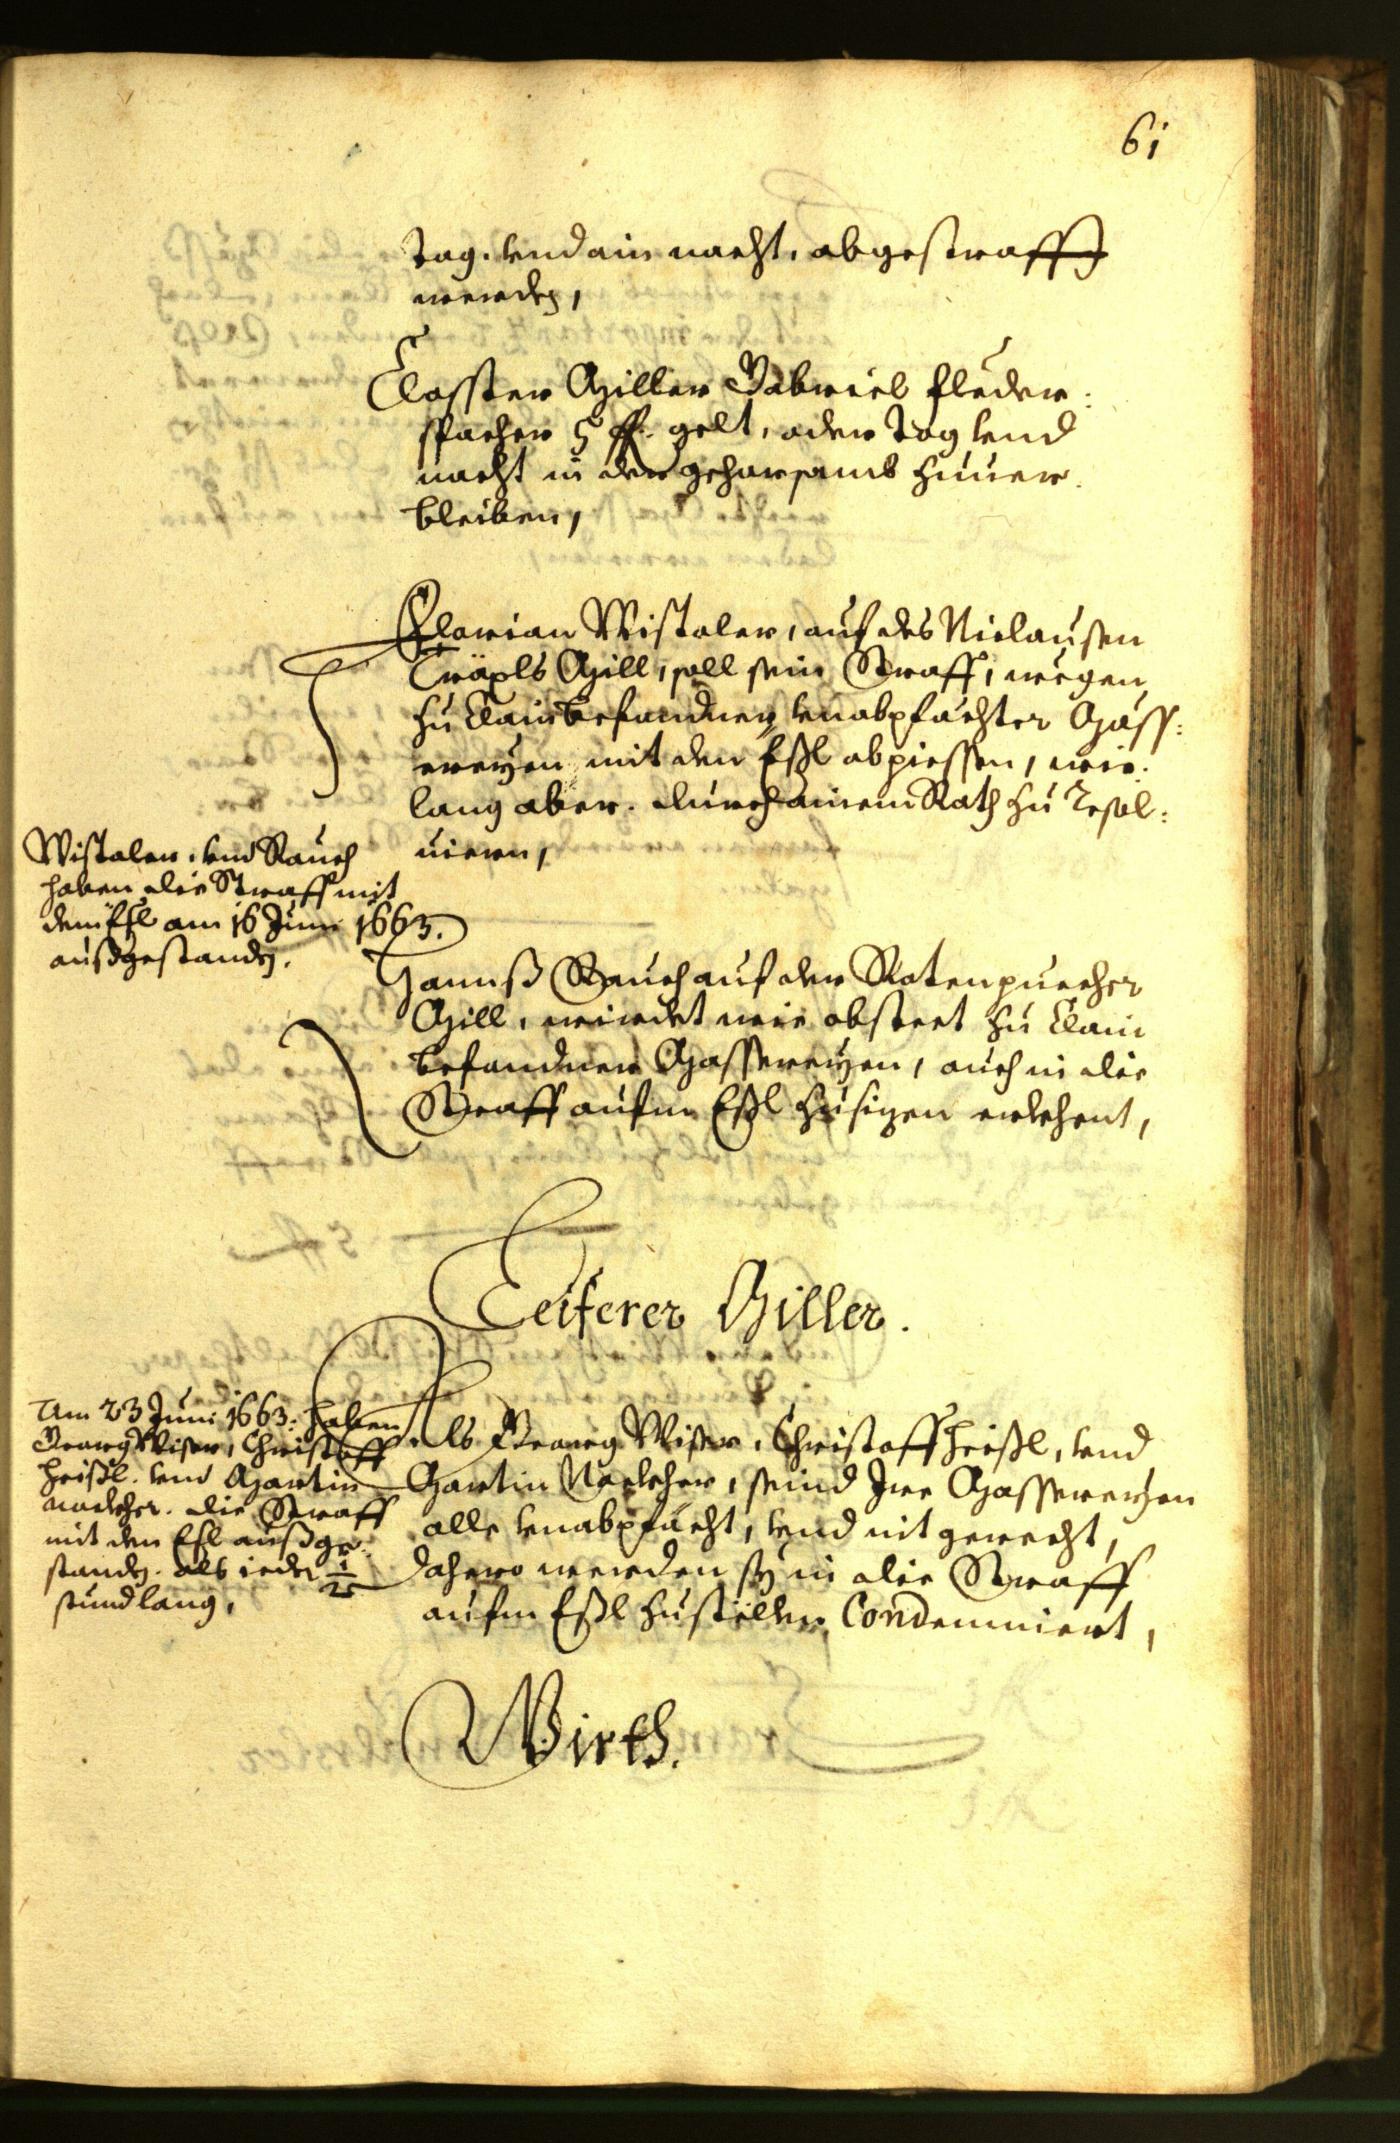 61
tag. vnd ain nacht, abgestrafft
werden,
Closster Miller Gabriel Fleder:
spacher 5 fl. gelt, oder tag vnd
nacht in der gehorsamb zuuer
bleiben,
Florian Wistaler, auf des Niclausen
Träpls Mill, soll sein Straff, wegen
zu klain befundnen vnabpfächter Mäss:
ereyen mit den Eßl abpiessen, wie
lang aber. durch ainem Rath zu resol:
uiern,
Wistaler. vnd Rauch
haben die Straff mit
dem Esl am 16 Juni 1663.
außgestanden.
Hannß Rauch auf der Rotenpuecher
Mill, wirdet wie obsteet zu klain
befundner Massereyen, auch in die
Straff aufm Eßl zusizen erkhent,
Leiferer Miller.
Am 23 Juni 1663. haben
Georg Wiser, Christoff
Heißl. vnd Martin
Nockher. die Straff
mit den Esl außge:
standen. als ieder 1/2
stund lang,
Als Georg Wiser, Christoff Heißl, vnd
Martin Nockher, seind Ire Massereyen
alle vnabpfächt, vnd nit gerecht,
dahero werden sy in die Straff
aufm Eßl zustellen Condemniert,
Wirth.